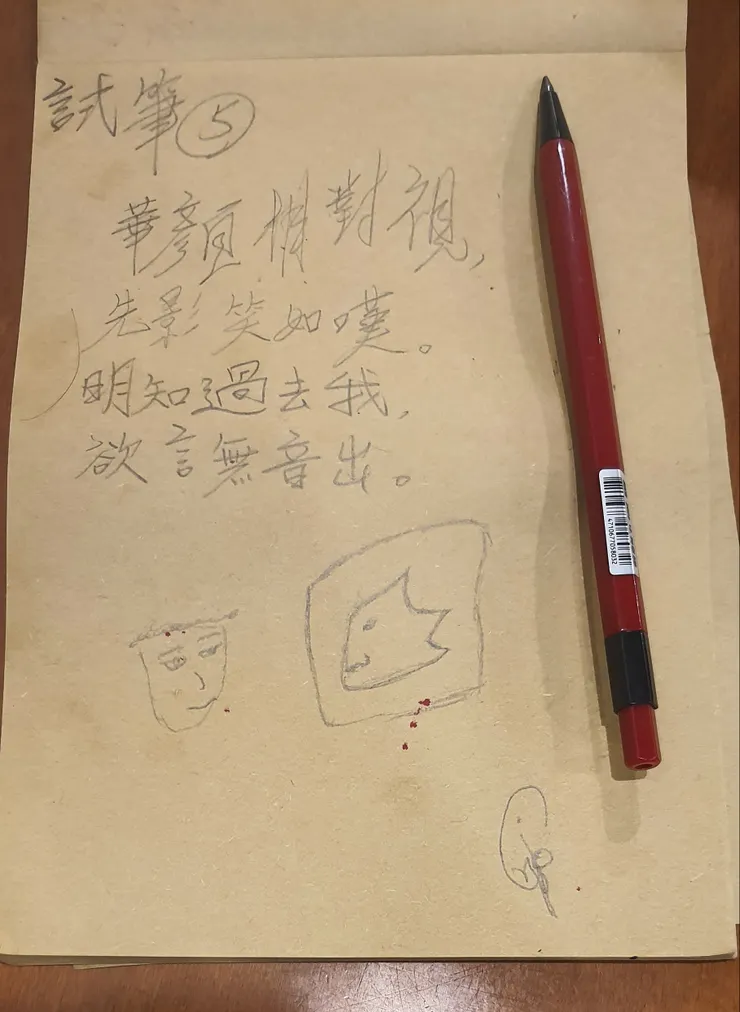 試筆⑤
華顏相對視,
先影笑如嘆。
明知過去我,
欲言無音出。